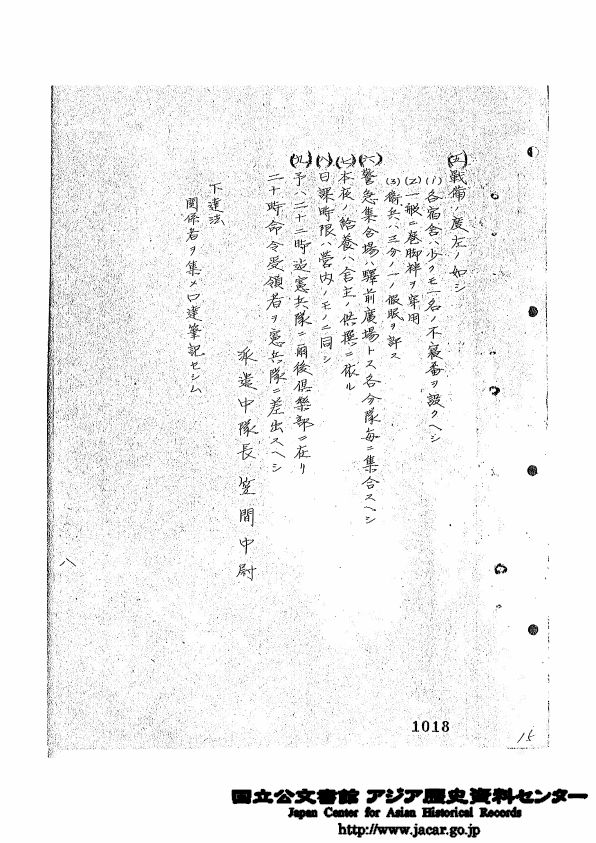 (五)戦備ノ度左ノ如シ
(1)各宿舎ハ少クモ一名ノ不寝番ヲ設クヘシ
(2)一般ニ巻脚絆ヲ穿用
(3)衛兵ハ三分ノ一ノ仮眠ヲ許ス
(六)警急集合場ハ驛前廣場トス各分隊毎ニ集合スヘシ
(七)本夜ノ給養ハ舎主ノ供撰ニ依ル
(八)日課時限ハ営内ノモノニ同シ
(九)予ハ二十二時迄憲兵隊ニ爾後倶樂部ニ在リ
二十時命令受領者ヲ憲兵隊ニ差出スヘシ
派遣中隊長 笠間中尉
下達法
関係者ヲ集メ口達筆記セシム
八
1018
15
国立公文書館 アジア歴史資料センター
Japan Center for Asian Historical Records
http://www.jacar.go.jp